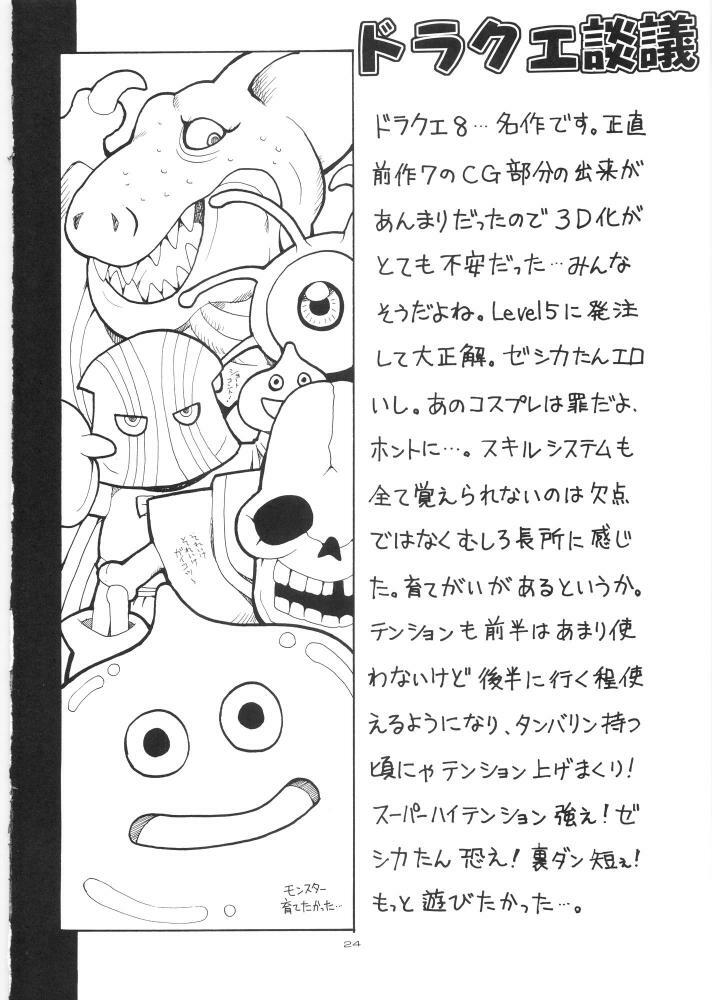 ドラクエ談議
ドラクエ8…名作です。正直
前作7のCG部分の出来が
あんまりだったので3D化が
とても不安だった…みんな
そうだよね。Level5に発注
して大正解。ゼシカたんエロ
いし。あのコスプレは罪だよ、
ホントに…。スキルシステムも
全て覚えられないのは欠点
ではなくむしろ長所に感じ
た。育てがいがあるというか。
テンションも前半はあまり使
わないけど後半に行く程使
えるようになり、タンバリン持つ
頃にゃテンション上げまくり!
スーパーハイテンション強ぇ!ゼ
シカたん恐ぇ!裏ダン短ぇ!
もっと遊びたかった…。
それいけ
それいけ
ガイコツ〜
モンスター
育てたかった…
24